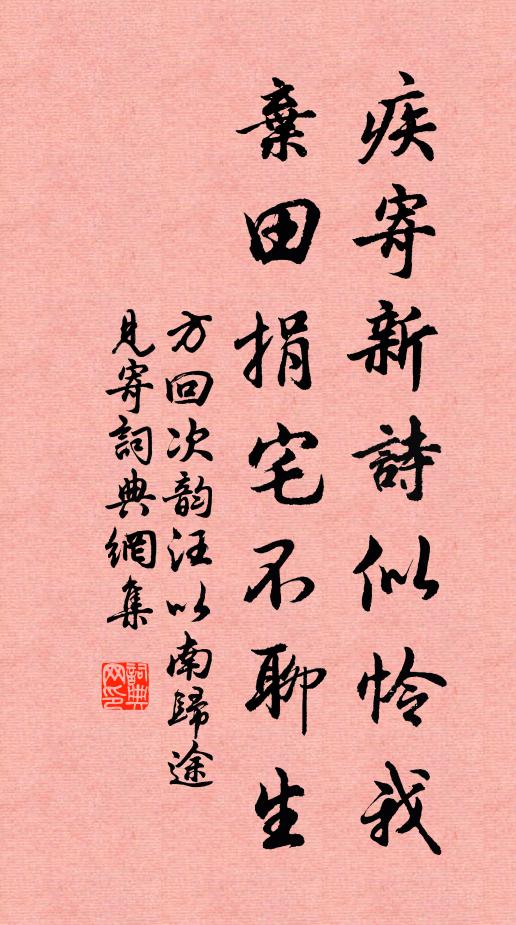 疾寄新詩似怜我
棄田捐宅不聊生
方回次韵汪以南歸途
見寄詞典網集
詞典网印